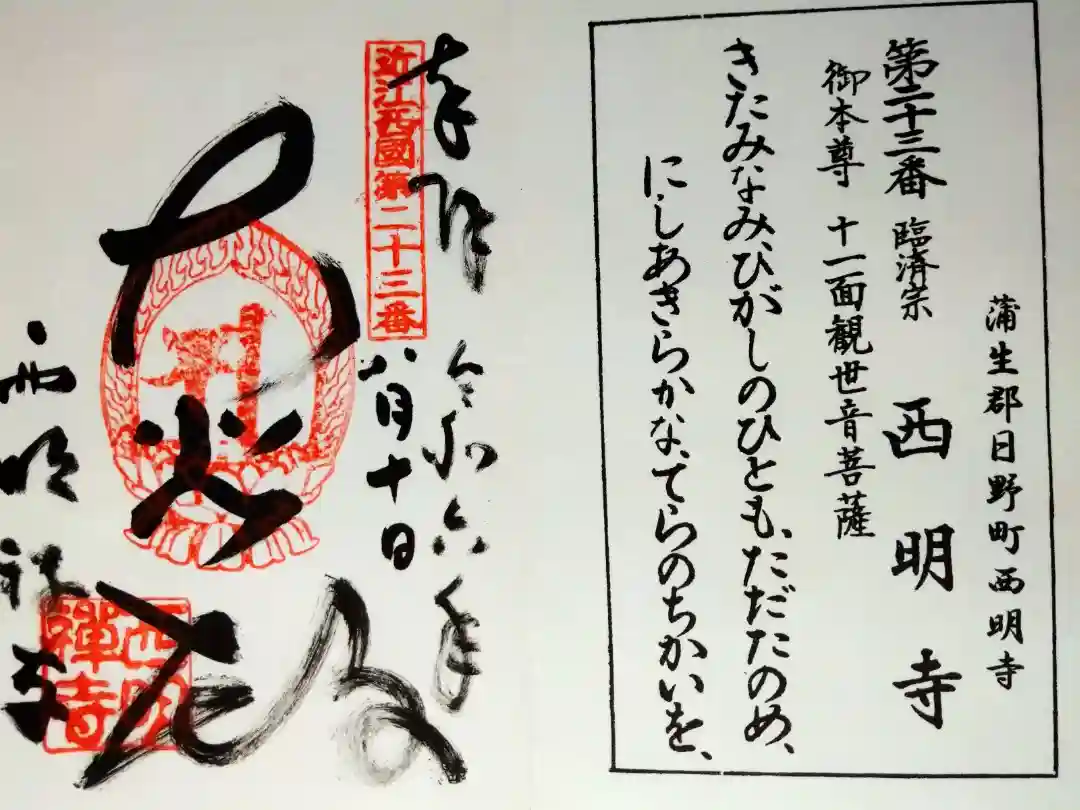 蒲生郡日野町西明寺
第二十三番 臨済宗 西明寺
御本尊 十一面観世音菩薩
きたみなみ、ひがしのひとも、ただたのめ、
にしあきらかな、てらのちかいを、
奉拝
近江西國第二十三番
令和六年
八月十日
大悲
西明禅寺
西明禪寺